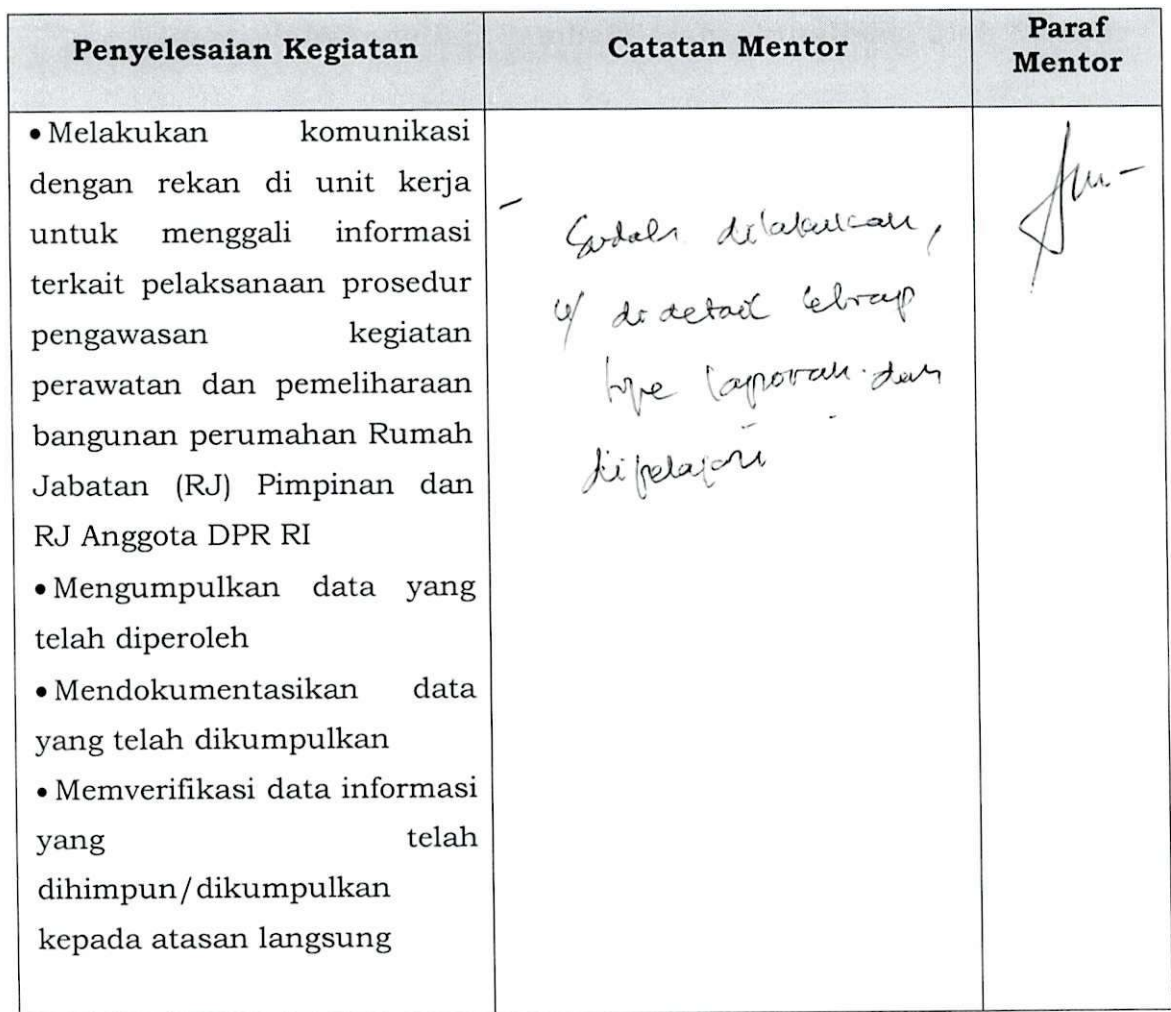 Penyelesaian Kegiatan
Catatan Mentor
Paraf
Mentor
• Melakukan komunikasi
dengan rekan di unit kerja
untuk menggali informasi
terkait pelaksanaan prosedur
pengawasan kegiatan
perawatan dan pemeliharaan
bangunan perumahan Rumah
Jabatan (RJ) Pimpinan dan
RJ Anggota DPR RI
• Mengumpulkan data yang
telah diperoleh
• Mendokumentasikan data
yang telah dikumpulkan
• Memverifikasi data informasi
yang telah
dihimpun/dikumpulkan
kepada atasan langsung
- Sudah dilakukan,
di detail
type laporan dan
dipelajari